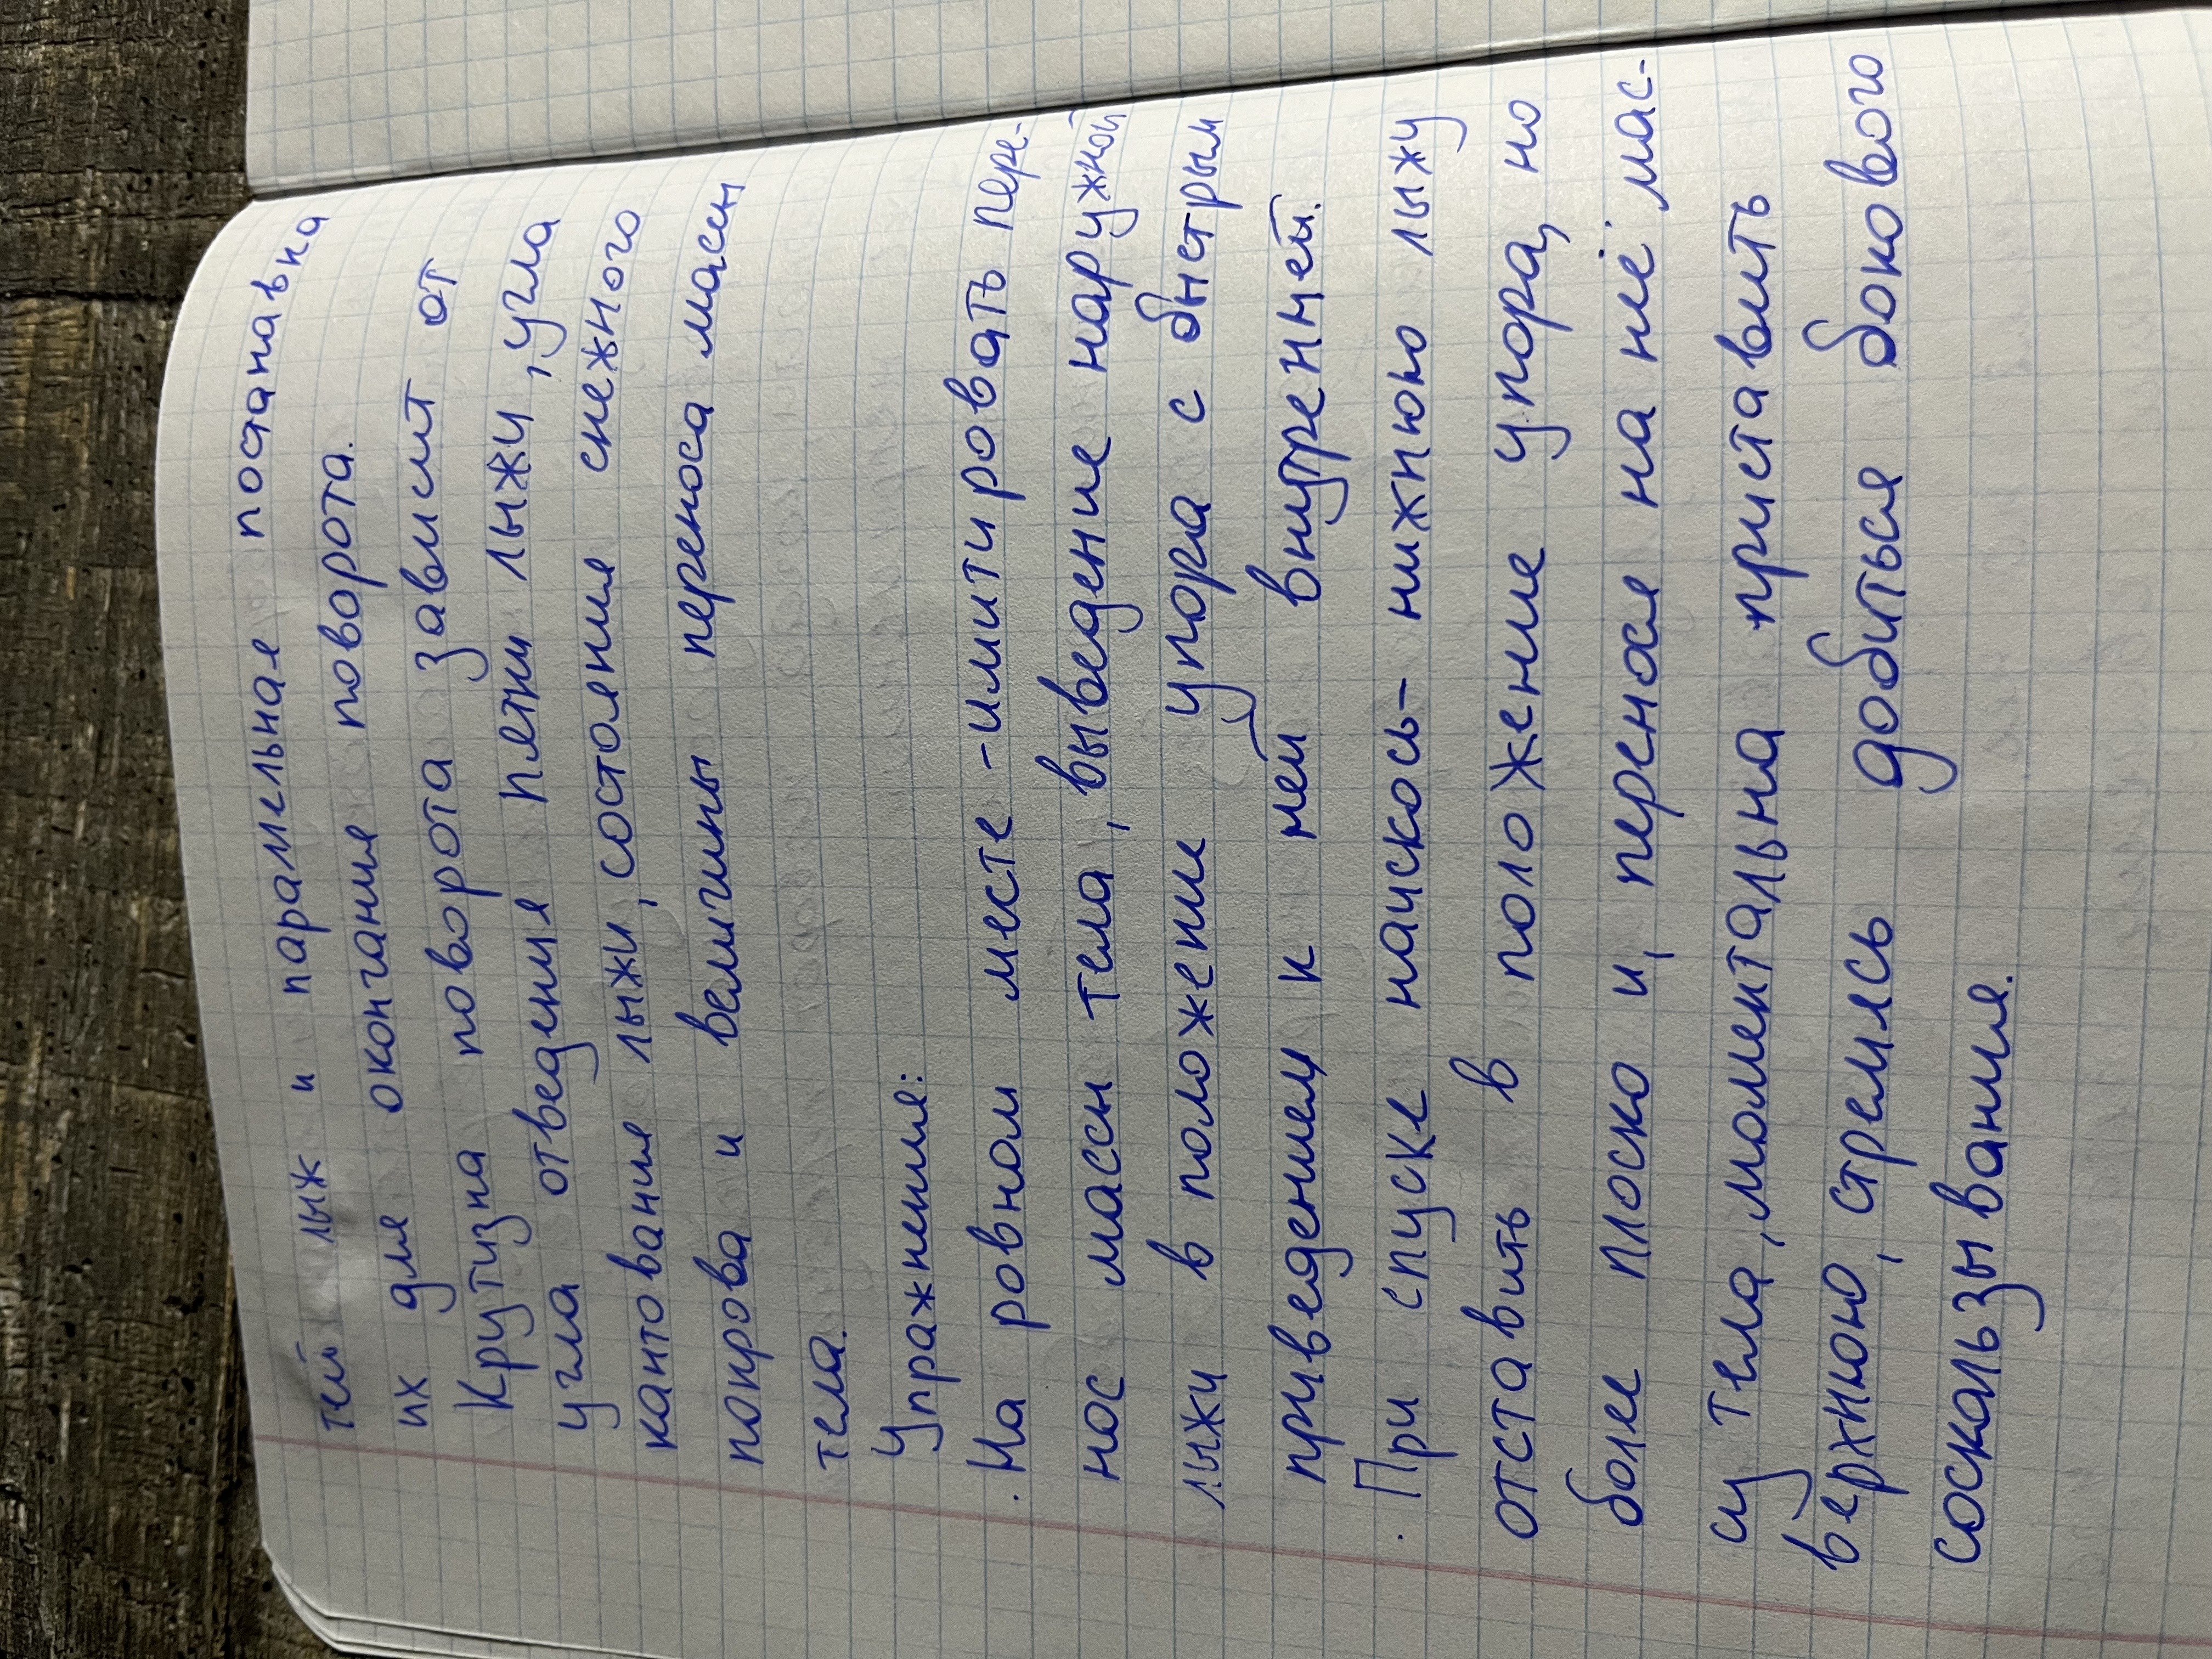 тей лыж и параллельная постановка
их для окончания поворота.
Крутизна поворота зависит от
угла отведения пятки лыжи, угла
кантования лыжи, состояния снежного
покрова и величины переноса массы
тела.
Упражнения:
. На ровном месте - имитировать пере-
нос массы тела, выведение наружной
лыжи в положении упора с быстрым
приведением к ней внутренней.
. При спуске наискось - нижнюю лыжу
отставить в положение упора, но
более плоско и, перенося на неё мас-
су тела, моментальна приставить
верхнюю, стремясь добиться бокового
соскальзывания.